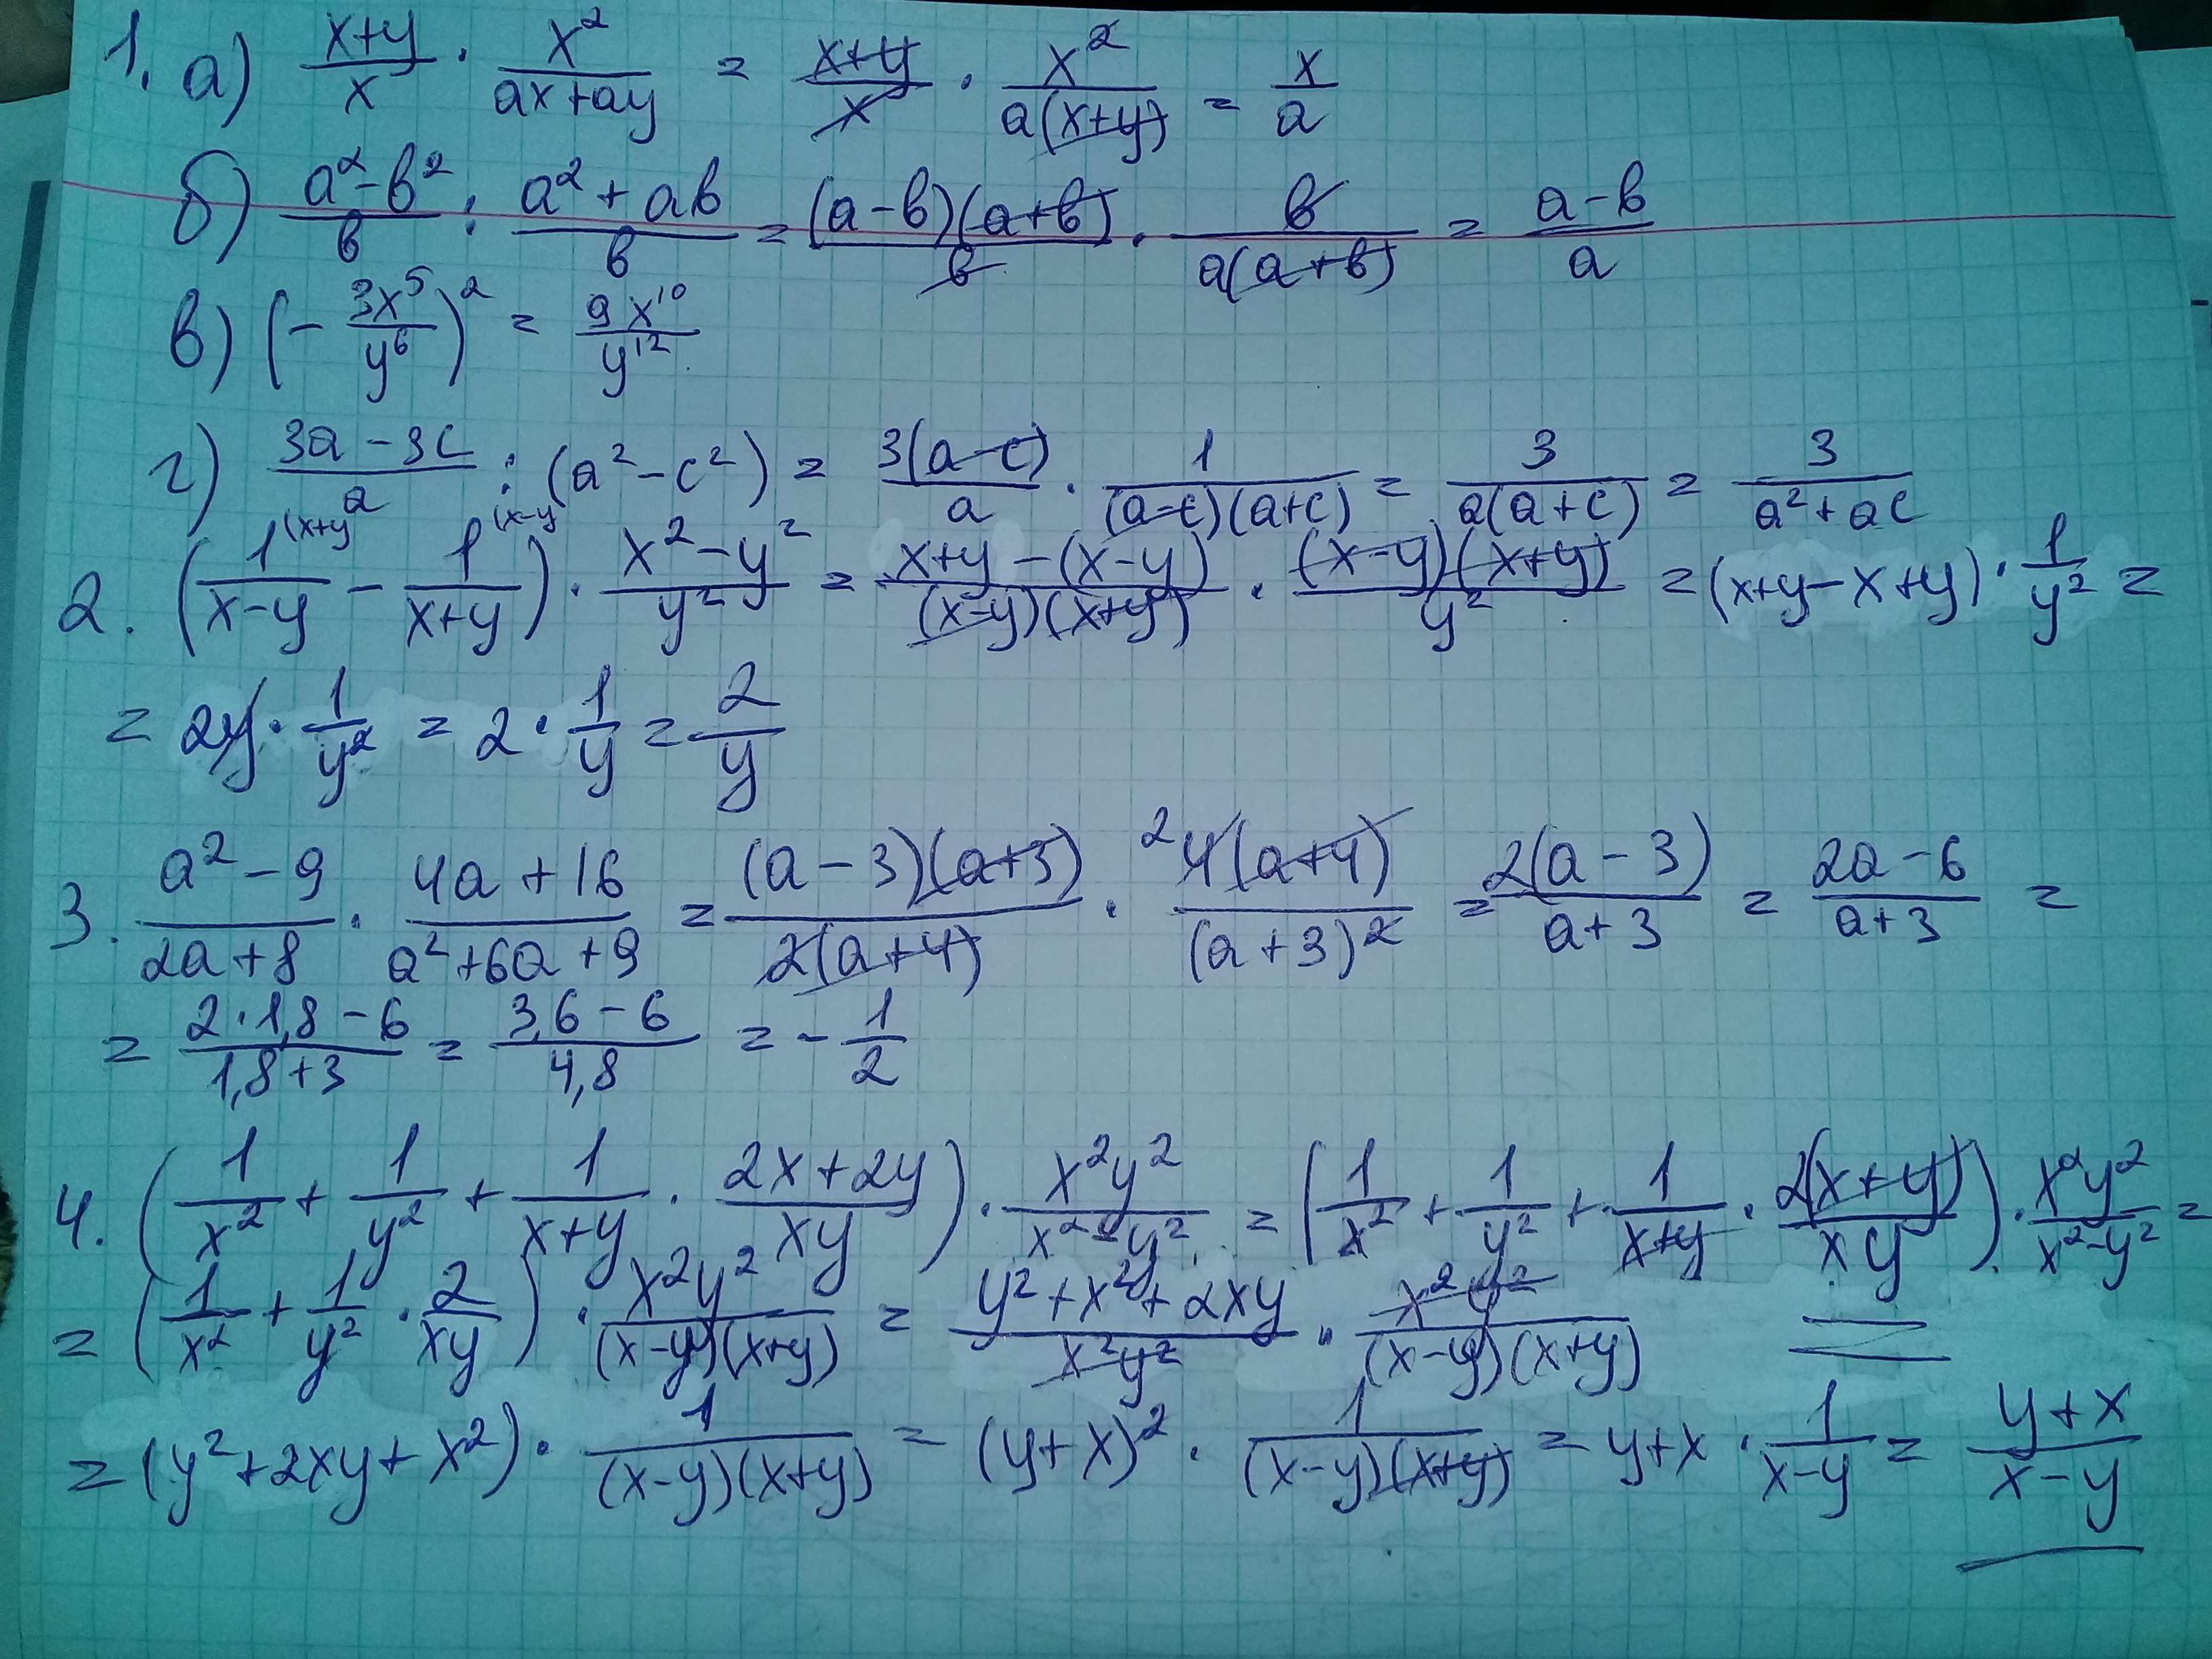 1. а) (x+y)/x · x²/(ax+ay) = (x+y)/x · x²/(a(x+y)) = x/a
б) (a²-b²)/b : (a²+ab)/b = ((a-b)(a+b))/b · b/(a(a+b)) = (a-b)/a
в) (- 3x⁵/y⁶)² = 9x¹⁰/y¹²
г) (3a-3c)/a : (a²-c²) = 3(a-c)/a · 1/((a-c)(a+c)) = 3/(a(a+c)) = 3/(a²+ac)
2. (1^(x+y/(x-y) - 1^(x-y/(x+y)) · (x²-y²)/y² = (x+y-(x-y))/((x-y)(x+y)) · ((x-y)(x+y))/y² = (x+y-x+y) · 1/y² =
= 2y · 1/y² = 2 · 1/y = 2/y
3. (a²-9)/(2a+8) · (4a+16)/(a²+6a+9) = ((a-3)(a+3))/(2(a+4)) · ²4(a+4)/(a+3)² = 2(a-3)/(a+3) = (2a-6)/(a+3) =
= (2·1,8-6)/(1,8+3) = (3,6-6)/4,8 = - 1/2
4. (1/x² + 1/y² + 1/(x+y) · (2x+2y)/xy) · x²y²/(x²-y²) = (1/x² + 1/y² + 1/(x+y) · 2(x+y)/xy) · x²y²/(x²-y²) =
= (1/x² + 1/y² · 2/xy) · x²y²/((x-y)(x+y)) = (y²+x²+2xy)/x²y² · x²y²/((x-y)(x+y)) =
= (y²+2xy+x²) · 1/((x-y)(x+y)) = (y+x)² · 1/((x-y)(x+y)) = y+x · 1/(x-y) = (y+x)/(x-y)